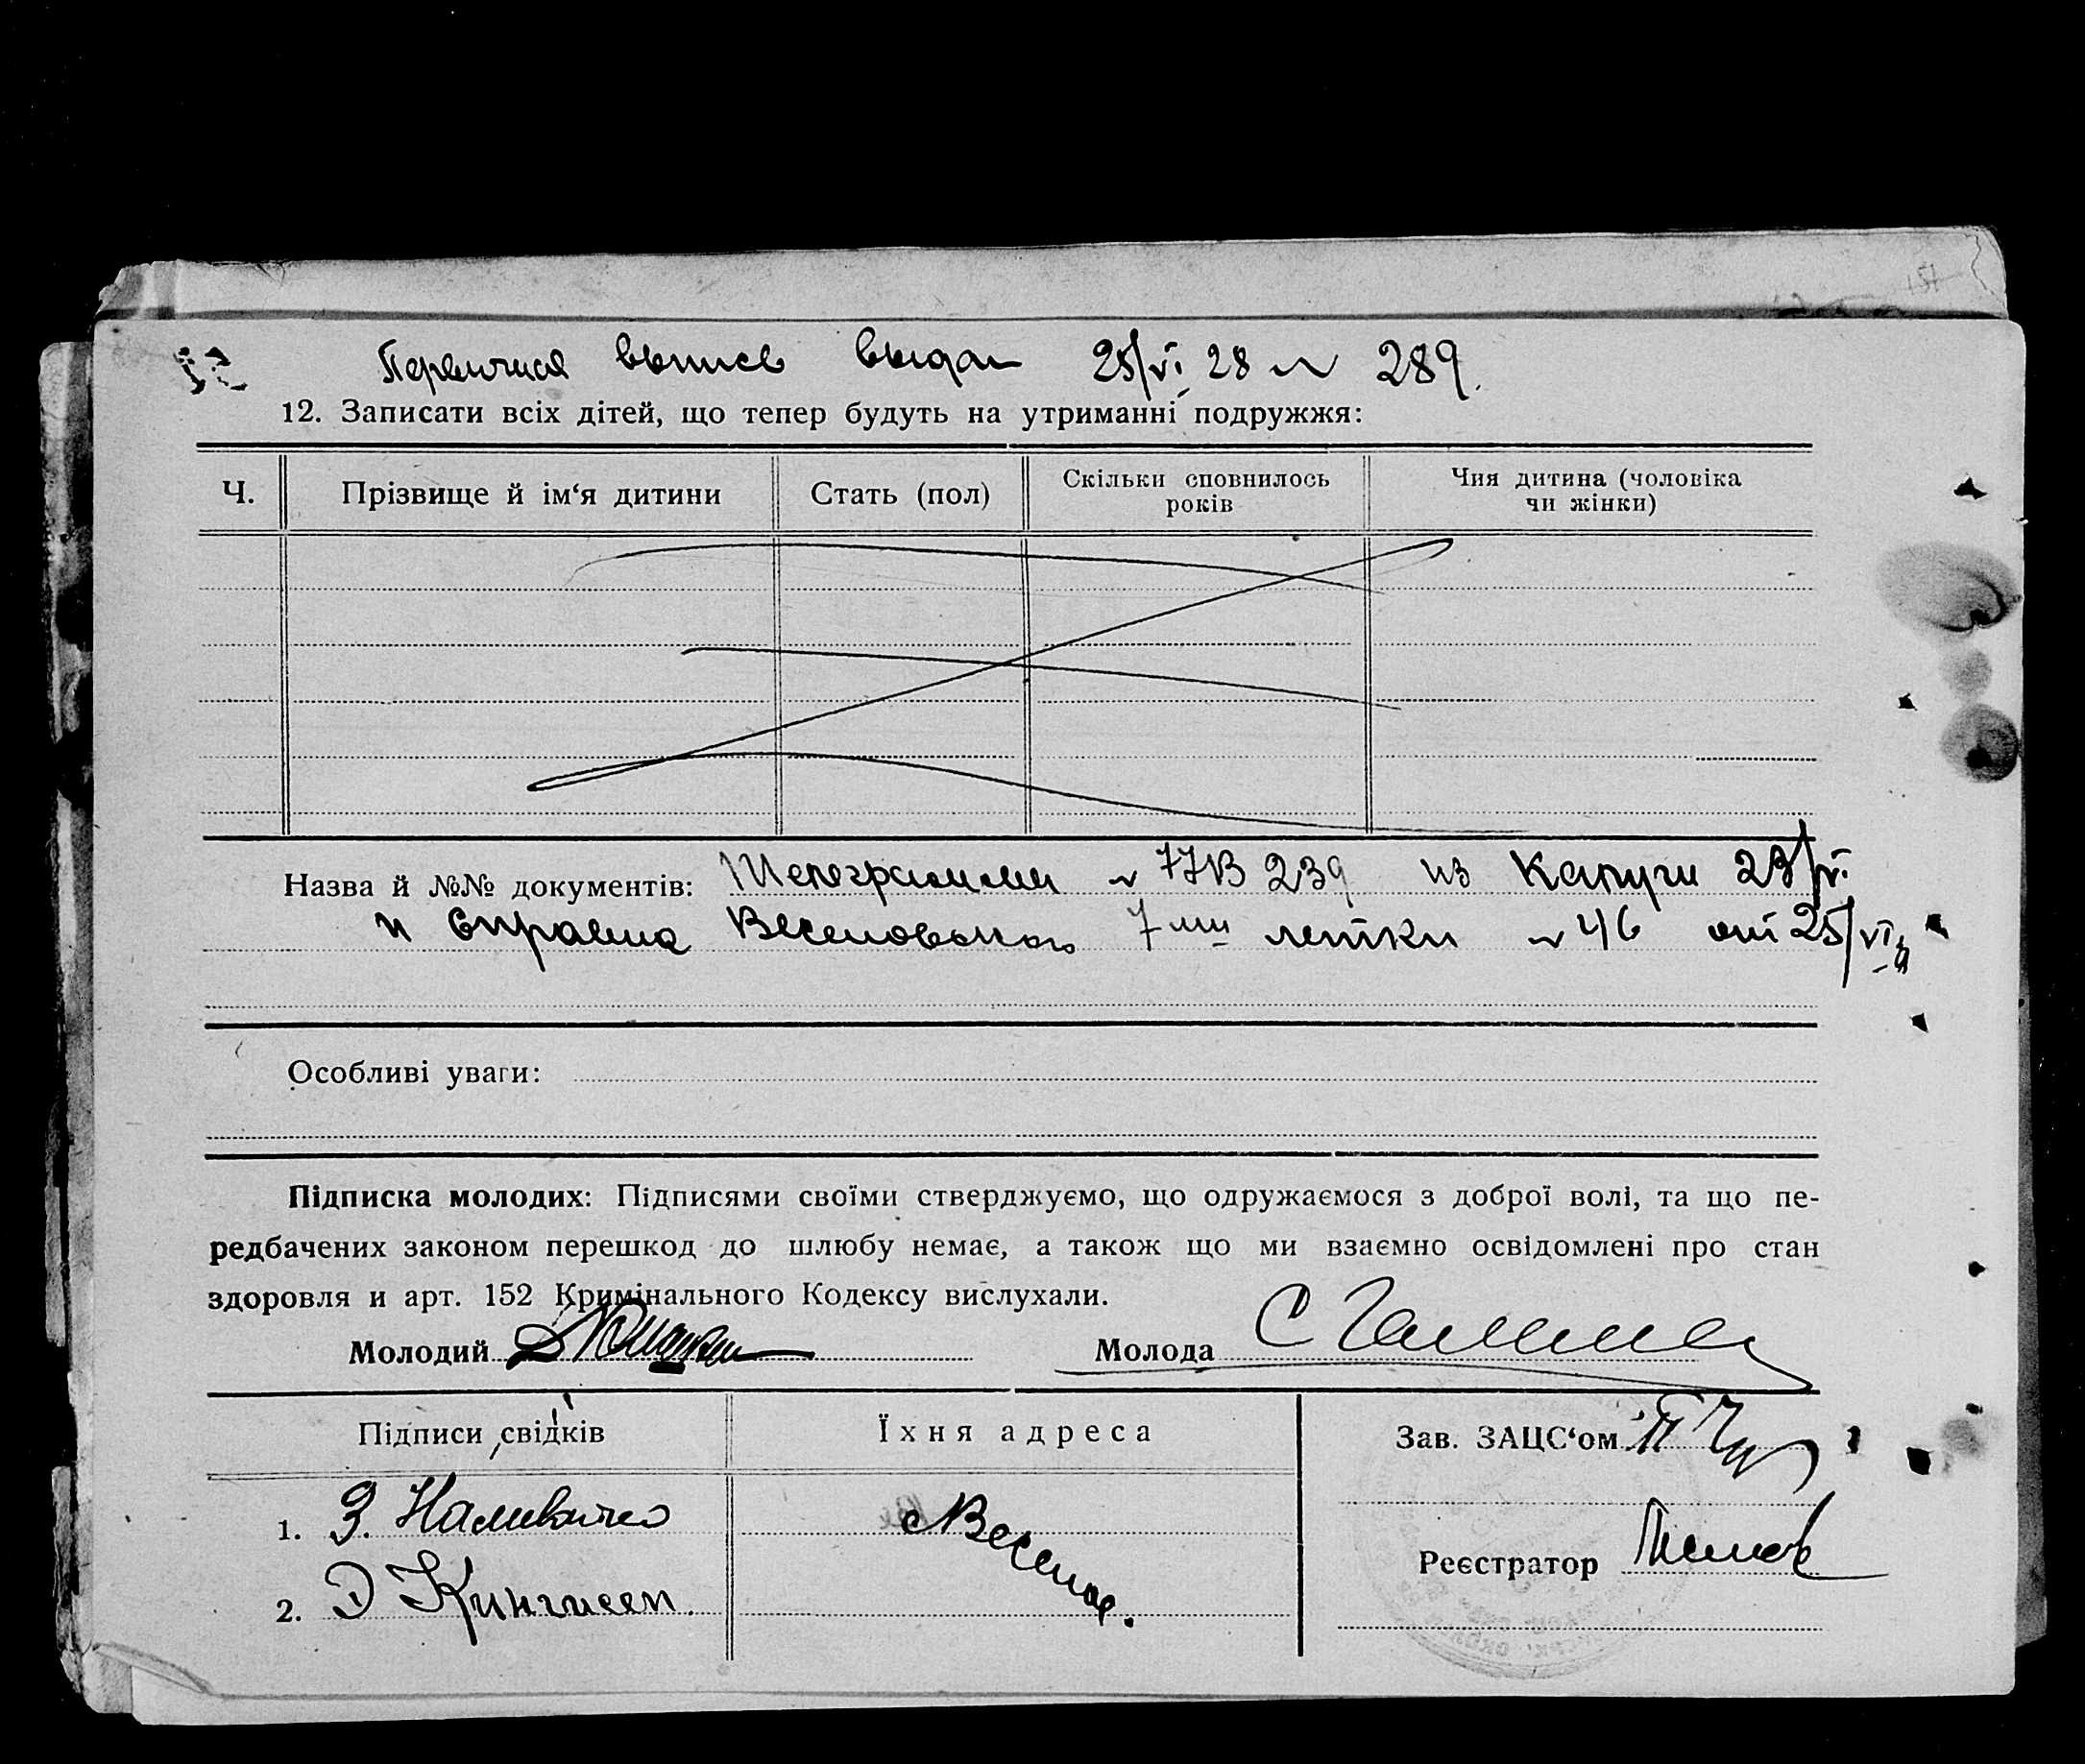 выпись выдан 25/VI 28 N 289.
12. Записати всіх дітей, що тепер будуть на утриманні подружжя:
Ч.
Прізвище й ім‘я дитини
Стать (пол)
Скільки сповнилось
років
Чия дитина (чоловіка
чи жінки)
Назва й №№ документів: Телеграммы N 77В 239 из Калуги 23/VI
и справка Веселовского 7ми летки N 46 от 25/VI
Особливі уваги:
Підписка молодих: Підписями своїми стверджуємо, що одружаємося з доброї волі, та що пе-
редбачених законом перешкод до шлюбу немає, а також що ми взаємно освідомлені про стан
здоровля и арт. 152 Кримінального Кодексу вислухали.
Молодий
Молода С
Підписи свідків
Їхня адреса
Зав. ЗАЦС‘ом
1. З. Наливайко
2. Э Кингисепп.
Реєстратор